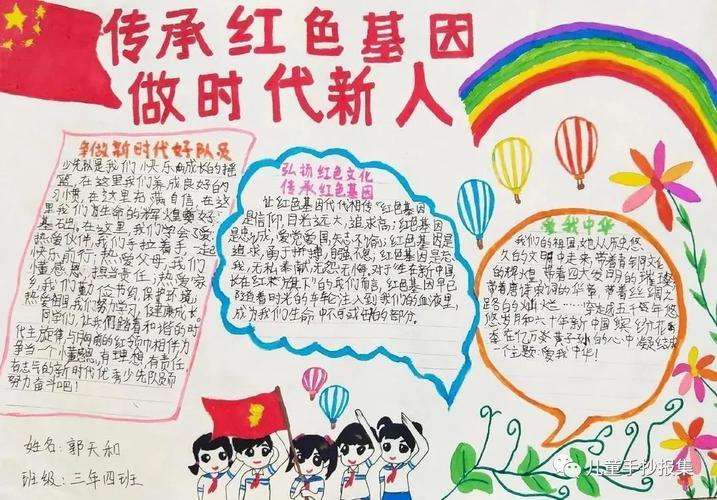 传承红色基因
做时代新人
争做新时代好队员
少先队是我们快乐成长的摇
篮,在这里我们养成良好的
习惯,在这里充满自信,在这
里我们为生命的辉煌奠好
基石。在这里,我们学会了爱
热爱伙伴,我们手拉着手,一起
快乐前行;热爱父母,我们
懂感恩,担当责任;热爱家
乡,我们勤俭节约,保护环境;
热爱祖国,我们努力学习,健康成长。
同学们,让我们踏着和谐的时
代主旋律,与胸前的红领巾相伴,力
争当一个懂感恩,有理想,有责任,
有志气的新时代优秀少先队员而
努力奋斗吧!
弘扬红色文化
传承红色基因
让红色基因代代相传"红色基因
是信仰,目光远大,追求高;红色基因
是忠诚,爱党爱国矢志不渝;红色基因是
追求,勇于拼搏
我,无私奉献,无怨无悔,对于"生在新中国,
长在红旗下"的我们而言,红色基因早已
随着时光的车轮注入到我们的血液里,
成为我们生命中不可或缺的部分。
爱我中华
我们的祖国,她从历史悠
久的文明中走来,带着青铜文化
的辉煌,带着四大发明的璀璨,
带着唐诗宋词的华章,带着丝绸之
路的灿烂……五千年
悠岁月和六十年新中国缤纷花
季,在亿万炎黄子孙的心中凝结成
一个主题:爱我中华!
姓名:郭天和
班级:三年四班
儿童手抄报集